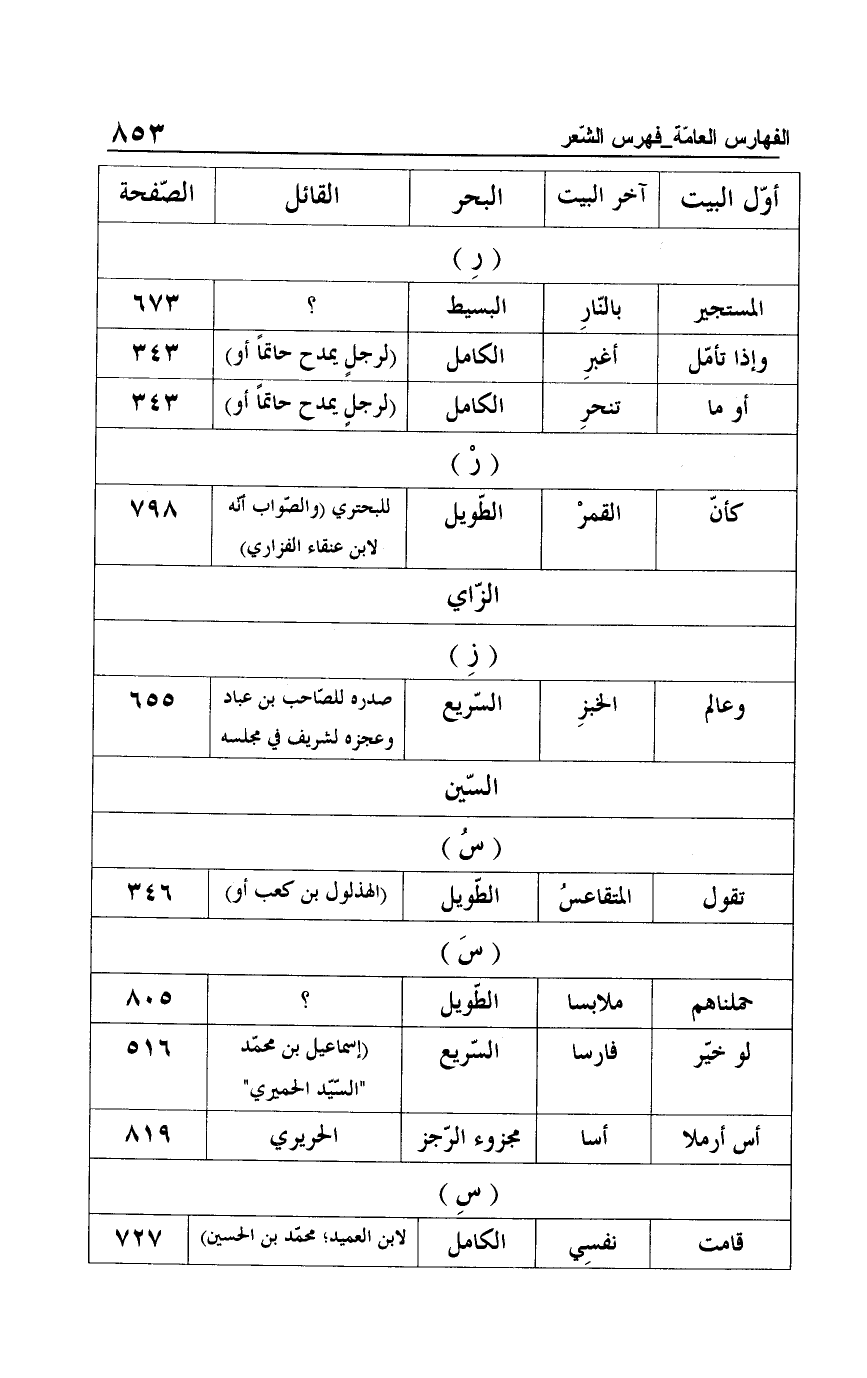 الفهارس العامّة_فهرس الشّعر ٨٥٣
أوّل البيت آخر البيت البحر القائل الصّفحة
(رِ)
المستجير بالنّارِ البسيط ؟ ٦٧٣
وإذا تأمّل أغبرِ الكامل (لرجلٍ يمدح حاتماً أو) ٣٤٣
أو ما تنحرِ الكامل (لرجلٍ يمدح حاتماً أو) ٣٤٣
(رْ)
كأنّ القمرْ الطّويل للبحتري (والصّواب أنّه ٧٩٨
لابن عنقاء الفزاري)
الزّاي
(زِ)
وعالم الخبزِ السّريع صدره للصّاحب بن عباد ٦٥٥
وعجزه لشريف في مجلسه
السّين
(سُ)
تقول المتقاعسُ الطّويل (الهذلول بن كعب أو) ٣٤٦
(سَ)
حملناهم ملابسا الطّويل ؟ ٨٠٥
لو خيّر فارسا السّريع (إسماعيل بن محمّد ٥١٦
"السّيّد الحميري"
أس أرملا أسا مجزوء الرّجز الحريري ٨١٩
(سِ)
قامت نفسِي الكامل لابن العميد؛ محمّد بن الحسين) ٧٢٧